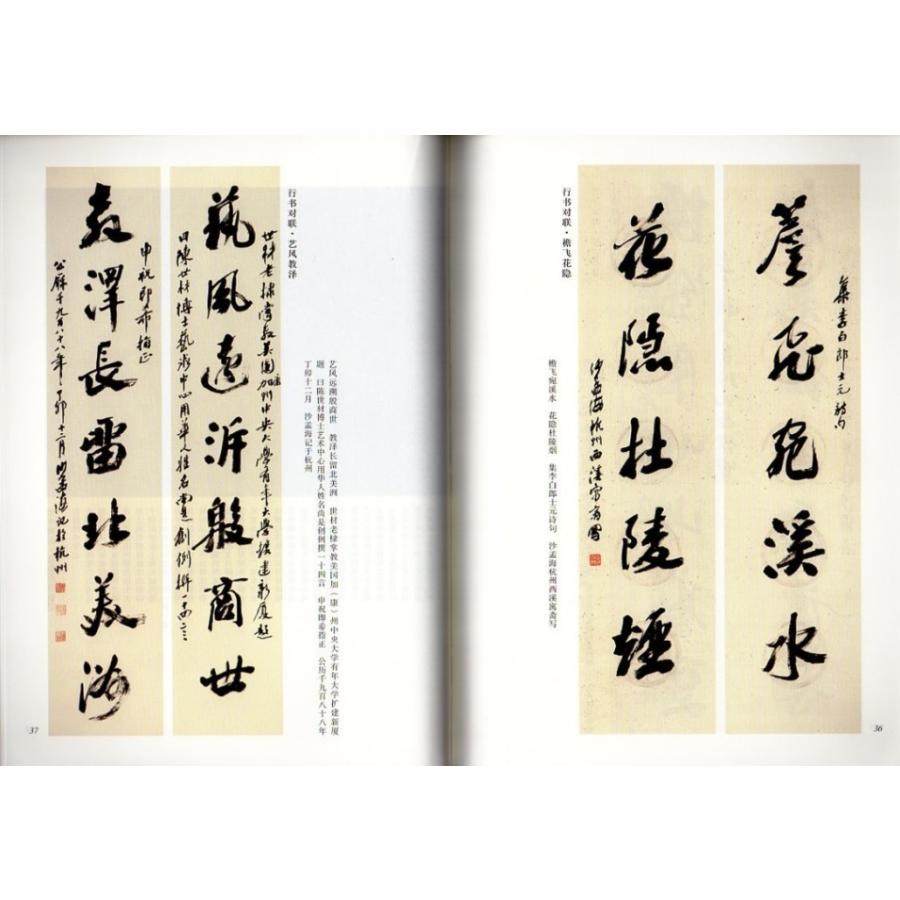 集李白郎士元诗句
薝飛宛溪水
花隱杜陵煙
沙孟海杭州西溪寓齋
行书对联·檐飞花隐
檐飞宛溪水 花隐杜陵烟 集李白郎士元诗句 沙孟海杭州西溪寓斋写
36
行书对联·艺风教泽
艺风远溯殷商世 教泽长留北美洲 世材老棣掌教美国加（康）州中央大学有年大学扩建新厦
题 曰陈世材博士艺术中心用华人姓名尚是创例撰一十四言 申祝即希指正 公历千九百八十八年
丁卯十二月 沙孟海记于杭州
世材老棣掌教美國加州中央大學有年大學擴建新厦題
藝風遠泝殷商世
曰陳世材博士藝術中心用華人姓名尚是創例撰一十四言
申祝即希指正
教澤長留北美洲
公曆千九百八十八年丁卯十二月沙孟海记於杭州
37